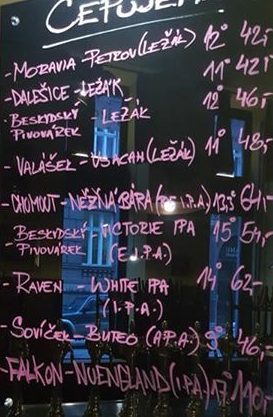 ČEPUJEME
-MORAVIA-PETROV(LEŽÁK) 12° 42,-
-DALEŠICE-LEŽÁK 11° 42,-
-BESKYDSKÝ PIVOVÁREK - LEŽÁK 12° 46,-
-VALÁŠEK-VSACAN(LEŽÁK) 11° 48,-
-CHOMOUT-NĚŽNÁ BÁRA(RE I.P.A.) 13,5° 64,-
BESKYDSKÝ PIVOVÁREK - VICTORIE IPA 15° 54,-
(E.I.P.A.)
-RAVEN - WHITE IPA 14° 62,-
(I.P.A.)
-SOVÍČEK-BUTEO (A.P.A.) 9° 46,-
-FALKON-NUENGLAND(I.P.A) 17° 110,-